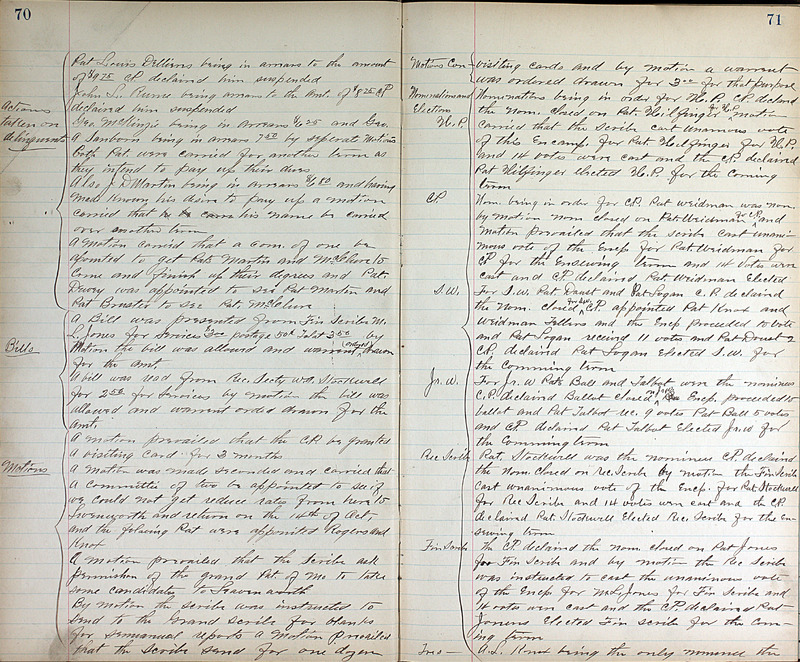 70
Pat Louis Dilliens being in arrears to the amount
of $9.75 C.P. declared him suspended
John L. being arrears to the Amt. of $8.25 C.P.
declared him suspended
Actions
taken on
delinquents
Geo. McKinzie being in arrears 6.25 and Geo.
A Sanborn being in arrears 7.50 by seperate Motions
Both Pat. were carried for another term as
they intend to pay up their dues
Also J. D Martin being in arrears and having
made known his desire to pay up a motion
carried that his name be carried
over another term
A Motion carried that a com. of one be
apointed to get Pats Martin and McClure to
Come and finish up their degrees and Pat.
Dewey was appointed to see Pat Martin and
Pat Brewster to see Pat McClure
A Bill was presented from Fin Scribe M.
L. Jones for Services postage 50¢ Total 3.50 by
Bills
Motion the bill was allowed and warrant ordered drawn
for the amt.
A bill was read from Rec. Secty W D Stockwell
for 2.50 for Services by motion the bill was
allowed and warrant orded drawn for the
amt.
A motion prevailed that the C.P. be granted
A visiting card for 3 months
Motions
A motion was made seconded and carried that
a Committee of two be appointed to see if
we could not get reduce rates from here to
Levenworth and return on the 14th of Oct,
and the folowing Pat were appointed Rogers and
Knox
A motion prevailed that the Scribe ask
permission of the grand Pat. of Mo to take
some candidates to Leavenworth
By Motion the scribe was instructed to
send to the Grand Scribe for blanks
for semanual reports A Motion prevailed
that the Scribe send for one dozen
71
Motions Con-
visiting cards and by motion a warrant
was ordered drawn for 3.00 for that purpose
Nominations and
Elections
H.P.
Nominations being in order for H.P. C.P. declared
the Nom. closed on Pat. Heilfinger for H.P. motion
carried that the Scribe cast unanimous vote
of this Encamp. for Pat. Heilfinger for H.P.
and 14 votes were cast and the C.P. declared
Pat Hilfinger Elected H.P. for the Coming
term
C.P.
Nom. being in order for C.P. Pat Weidman was nom.
by motion nom closed on Pat. Weidman for C.P. and
Motion prevailed that the scribe cast unani-
mous vote of the Encp for Pat. Weidman for
C.P. for the Ensewing term and 14 Votes were
cast and C.P. declared Pat Weidman Elected
S.W.
For S.W. Pat. Doust and Pat Logan C.P. declared
the Nom. closed for S.W. C.P. appointed Pat Knox and
Weidman Tellers and the Encp proceeded to vote
and Pat Logan received 11 votes and Pat Doust 2
C.P. declared Pat Logan Elected S.W. for
the Comming term
Jr. W.
For Jr. W Pats Ball and Talbot were the nominees
C.P. declared Ballot closed for Jr. W. Encp. proceeded to
ballot and Pat Talbot rec. 9 votes Pat Ball 5 votes
and C.P. declared Pat Talbot Elected Jr. W for
the Comming term
Rec Scribe
Pat. Stockwell was the nominee C.P. declared
the Nom closed on Rec. Scribe by motion the Fin Scribe
cast unanimous vote of the Encp. for Pat Stockwell
for Rec Scribe and 14 votes were cast and the C.P.
declared Pat. Stockwell Elected Rec. Scribe for the En-
sewing term
Fin Scribe
The C.P. declared the nom. closed on Pat Jones
for Fin Scribe and by motion the Rec Scribe
was instructed to cast the unanimous vote
of the Encp for M L Jones for Fin Scribe and
14 votes were cast and the C.P. declared Pat
Jones Elected Fin scribe for the Com-
ing term
Tres—
A. L. Knox being the only nominee the